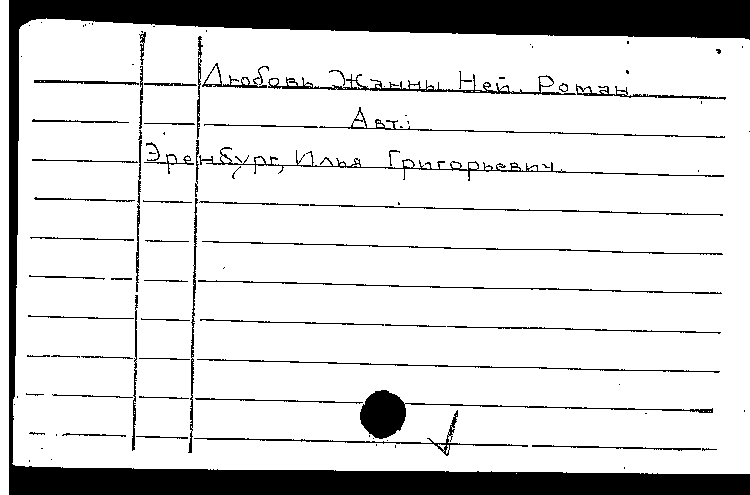 Любовь Жанны Ней. Роман
Авт.:
Эренбург, Илья Григорьевич.